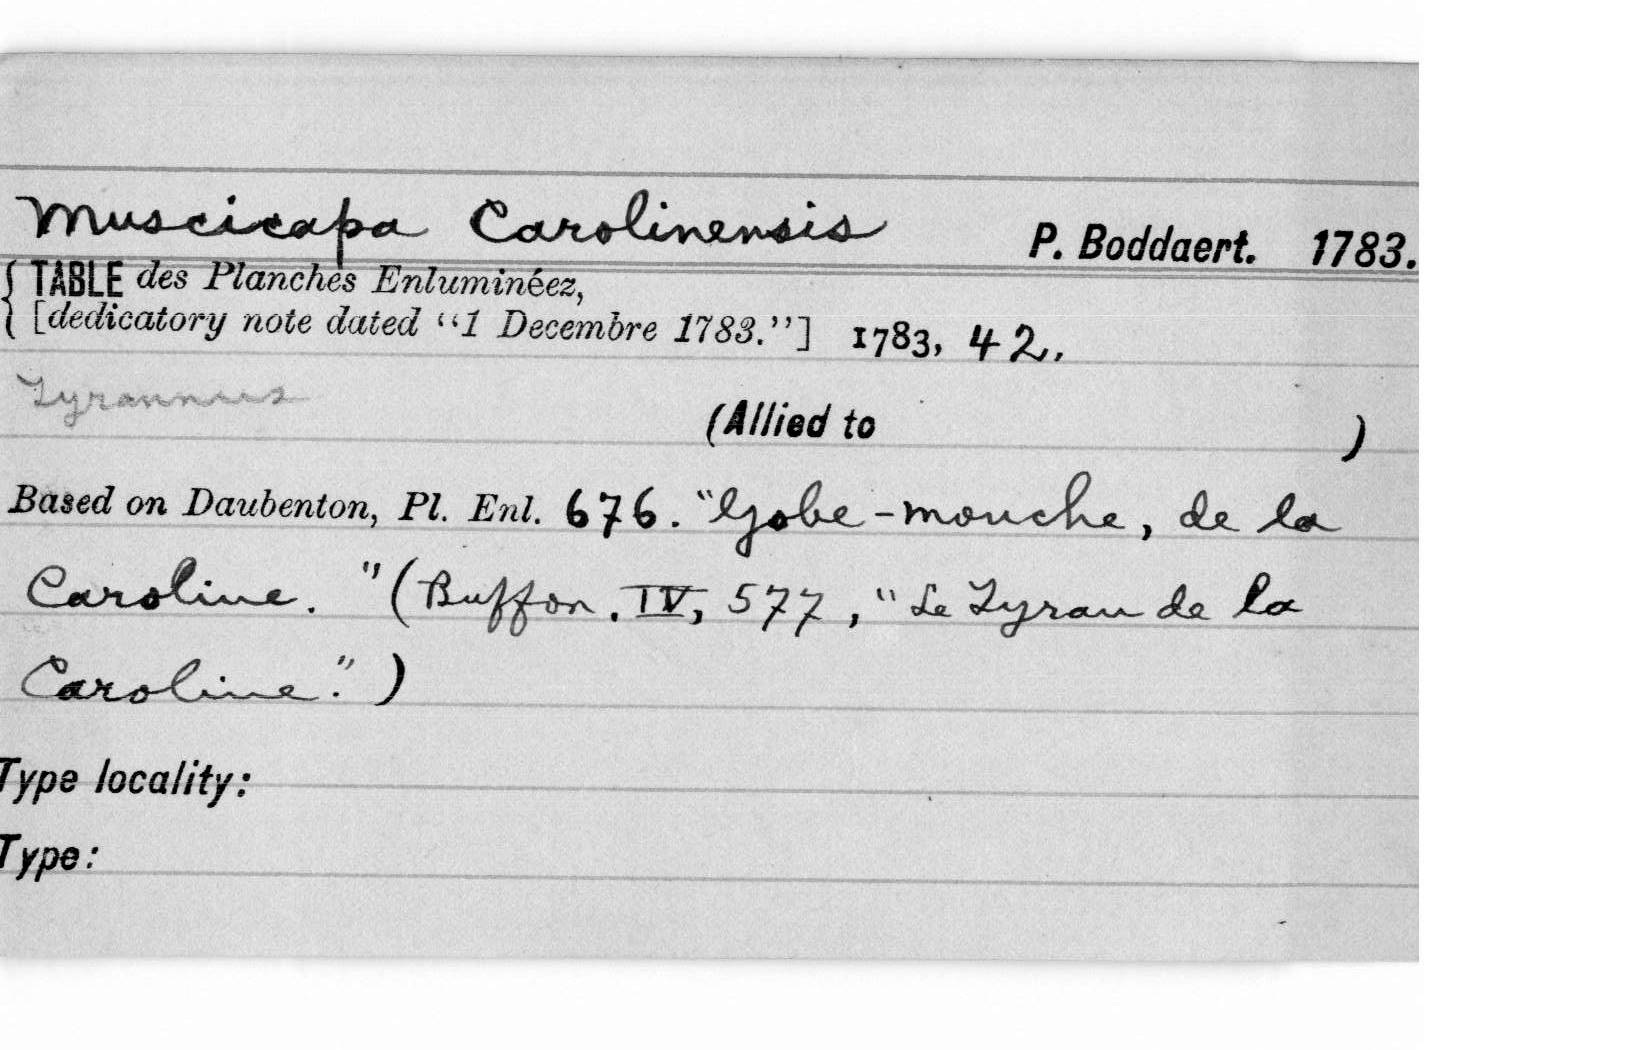 Muscicapa Carolinensis P. Boddaert. 1783.
{ TABLE des Planches Enluminéez,
[dedicatory note dated “1 Decembre 1783.”] 1783, 42.
Tyrannus
(Allied to )
Based on Daubenton, Pl. Enl. 676. "Gobe-mouche, de la
Caroline." (Buffon. IV, 577, "Le Tyran de la
Caroline.")
Type locality:
Type: